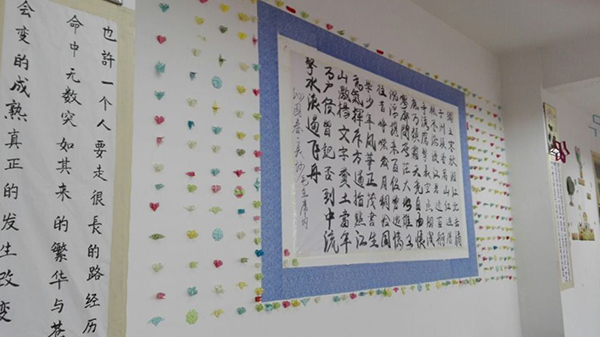 也許一个人要走很長的路经历
命中无数突如其来的繁华与苍
会变的成熟真正的发生改变
獨立寒秋湘江北去橘
子洲头看万山红遍
争流鹰击长空鱼翔浅
底万类霜天竞自由怅
寥廓问苍茫大地谁主
沉浮携来百侣曾游憶
往昔峥嵘歲月稠恰同
学少年風华正茂書生
意氣揮斥方遒指點江
山激揚文字糞土當年
万户侯曾記否到中流
擊水浪遏飞舟
沁園春·長沙